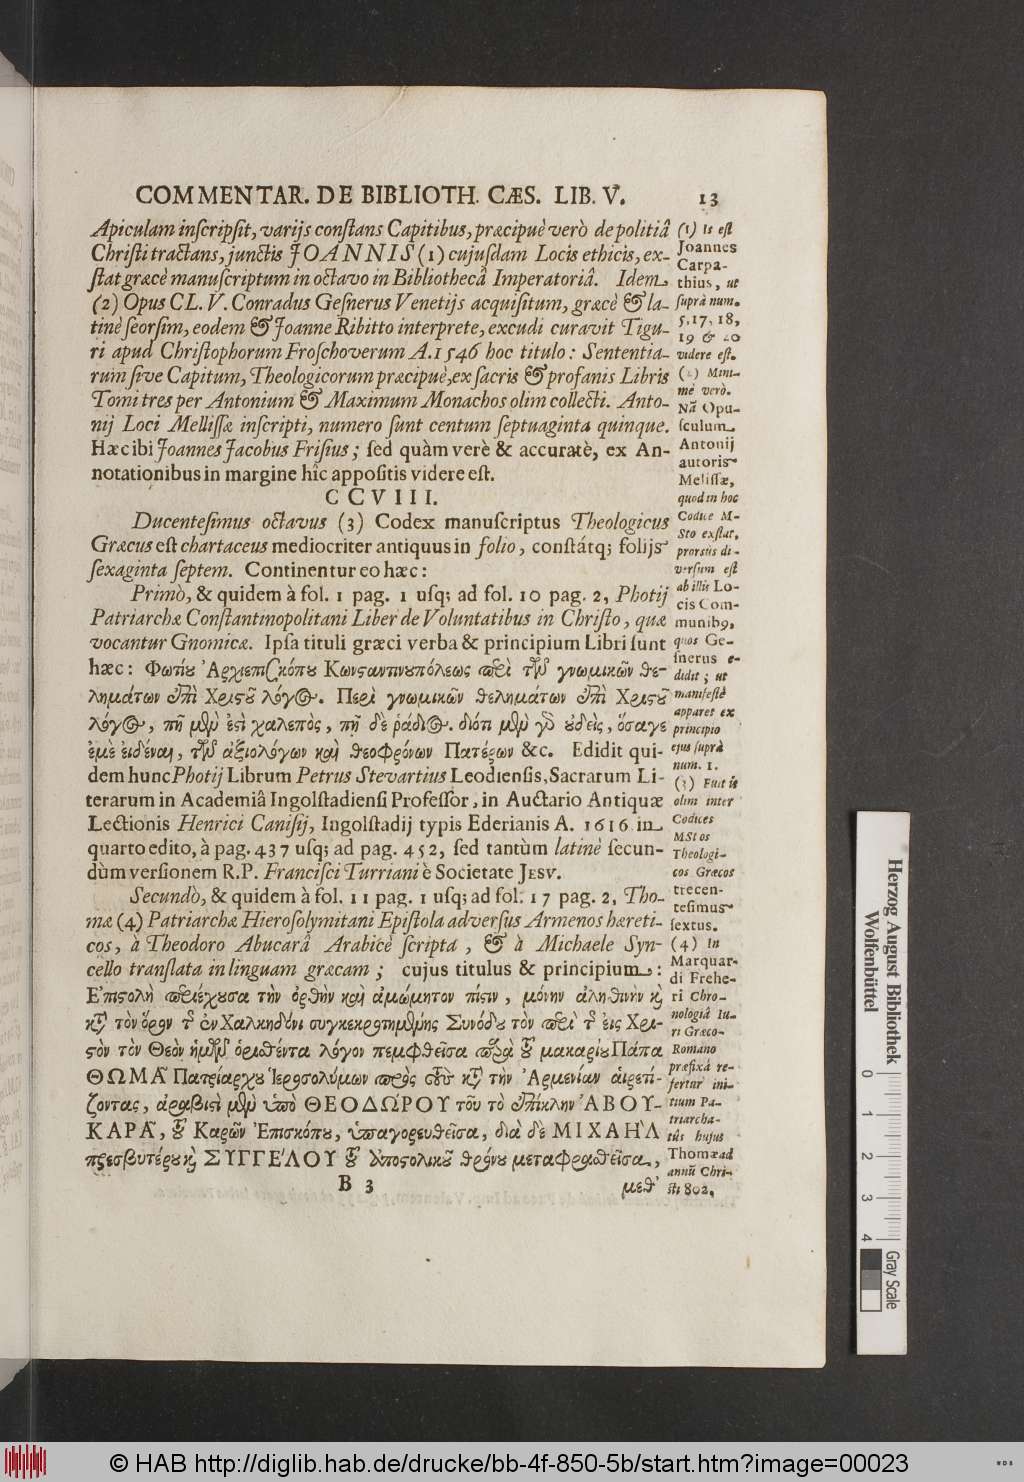 COMMENTAR. DE BIBLIOTH. CÆS. LIB. V. 13
Apiculam inſcripſit, varijs conſtans Capitibus, præcipuè verò de politiâ
Chriſti tractans, junctis JOANNIS (1) cujuſdam Locis ethicis, ex-
ſtat græcè manuſcriptum in octavo in Bibliothecâ Imperatoriâ. Idem
(2) Opus CL. V. Conradus Geſnerus Venetijs acquiſitum, græcè & la-
tinè ſeorſim, eodem & Joanne Ribitto interprete, excudi curavit Tigu-
ri apud Chriſtophorum Froſchoverum A. 1546 hoc titulo: Sententia-
rum ſive Capitum, Theologicorum præcipuè, ex ſacris & profanis Libris
Tomi tres per Antonium & Maximum Monachos olim collecti. Anto-
nij Loci Meliſſæ inſcripti, numero ſunt centum ſeptuaginta quinque.
Hæc ibi Joannes Jacobus Friſius; ſed quàm verè & accuratè, ex An-
notationibus in margine hîc appoſitis videre eſt.
CCVIII.
Ducenteſimus octavus (3) Codex manuſcriptus Theologicus
Græcus eſt chartaceus mediocriter antiquus in folio, conſtátq; folijs
ſexaginta ſeptem. Continentur eo hæc:
Primò, & quidem à fol. 1 pag. 1 uſq; ad fol. 10 pag. 2, Photij
Patriarchæ Conſtantinopolitani Liber de Voluntatibus in Chriſto, quæ
vocantur Gnomicæ. Ipſa tituli græci verba & principium Libri ſunt
hæc: Φωτίȣ Ἀρχιεπισκόπȣ Κωνϛαντινȣπόλεως περὶ τῶν γνωμικῶν θε-
λημάτων ἐπὶ Χριϛȣ͂ λόγος. Περὶ γνωμικῶν θελημάτων ἐπὶ Χριϛȣ͂
λόγος, πῆ μὲν ἐϛὶ χαλεπὸς, πῆ δὲ ῥάδιος. διότι μὲν γὰρ ȣδεὶς, ὅσα γε
ἐμὲ εἰδέναι, τῶν ἀξιολόγων καὶ θεοφρόνων Πατέρων &c. Edidit qui-
dem hunc Photij Librum Petrus Stevartius Leodienſis, Sacrarum Li-
terarum in Academiâ Ingolſtadienſi Profeſſor, in Auctario Antiquæ
Lectionis Henrici Caniſij, Ingolſtadij typis Ederianis A. 1616 in
quarto edito, à pag. 437 uſq; ad pag. 452, ſed tantùm latinè ſecun-
dùm verſionem R.P. Franciſci Turriani è Societate JESV.
Secundò, & quidem à fol. 11 pag. 1 uſq; ad fol. 17 pag. 2, Tho-
mæ (4) Patriarchæ Hieroſolymitani Epiſtola adverſus Armenos hæreti-
cos, à Theodoro Abucarâ Arabicè ſcripta, & à Michaele Syn-
cello translata in linguam græcam; cujus titulus & principium:
Ἐπιϛολὴ περιέχȣσα τὴν ὀρθὴν καὶ ἀμώμητον πίϛιν, μόνην ἀληθινὴν κ̀
κτ̀ τὸν ὅρον τ͂ ἐν Χαλκηδόνι συγκεκροτημένης Συνόδȣ τὸν περὶ τ͂ εἰς Χρι-
ϛὸν τὸν Θεὸν ἡμῶν ὁριθέντα λόγον πεμφθεῖσα παρὰ τȣ͂ μακαρίȣ Πάπα
ΘΩΜΑ͂ Πατριάρχȣ Ἱεροσολύμων πρὸς τȣ̀ς κτ̀ τὴν Ἀρμενίαν αἱρετί-
ζοντας, ἀραβιϛὶ μὲν ὑπὸ ΘΕΟΔΏΡΟΥ τοῦ τὸ ἐπίκλην ἈΒΟΥ-
ΚΑΡΑ͂, τȣ͂ Καρῶν Ἐπισκόπȣ, ὑπαγορευθεῖσα, διὰ δὲ ΜΙΧΑῊΛ
πρεσβυτέρȣ κ̀ ΣΥΓΓΈΛΟΥ τȣ͂ Ἀποϛολικȣ͂ θρόνȣ μεταφραθεῖσα,
B 3 μεθ’
(1) Is eſt
Joannes
Carpa-
thius, ut
ſuprà num.
5, 17, 18,
19 & 20
videre eſt.
(2) Mini-
mè verò.
Nã Opu-
ſculum
Antonij
autoris
Meliſſæ,
quod in hoc
Codice M-
Sto exſtat,
prorsùs di-
verſum eſt
ab illis Lo-
cis Com-
munib9,
quos Ge-
ſnerus e-
didit; ut
manifeſtè
apparet ex
principio
ejus ſuprà
num. 1.
(3) Fuit is
olim inter
Codices
MStos
Theologi-
cos Græcos
trecen-
teſimus
ſextus.
(4) In
Marquar-
di Frehe-
ri Chro-
nologiâ Iu-
ris Græco-
Romano
præfixâ re-
fertur ini-
tium Pa-
triarcha-
tûs hujus
Thomæ ad
annũ Chri-
ſti 802,
Herzog August Bibliothek
Wolfenbüttel
0 1 2 3 4
Gray Scale
© HAB http://diglib.hab.de/drucke/bb-4f-850-5b/start.htm?image=00023